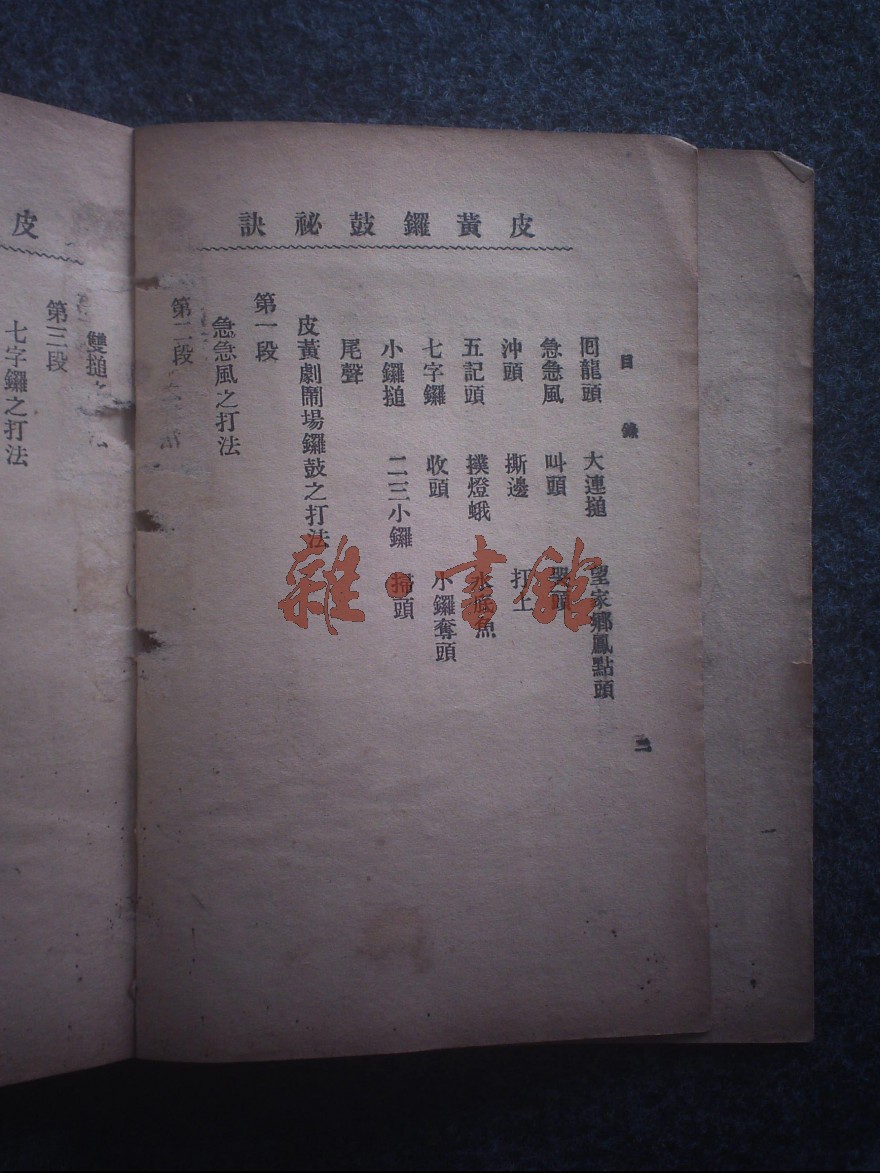 皮黃鑼鼓祕訣
目錄
二
囘龍頭 大連搥 望家鄉鳳點頭
急急風 叫頭 哭頭
沖頭 撕邊 打上
五記頭 撲燈蛾 水底魚
七字鑼 收頭 小鑼奪頭
小鑼搥 二三小鑼 掃頭
尾聲
皮黃劇鬧場鑼鼓之打法
第一段
急急風之打法
第二段
皮
雙搥之 法
第三段
七字鑼之打法
雜·書館